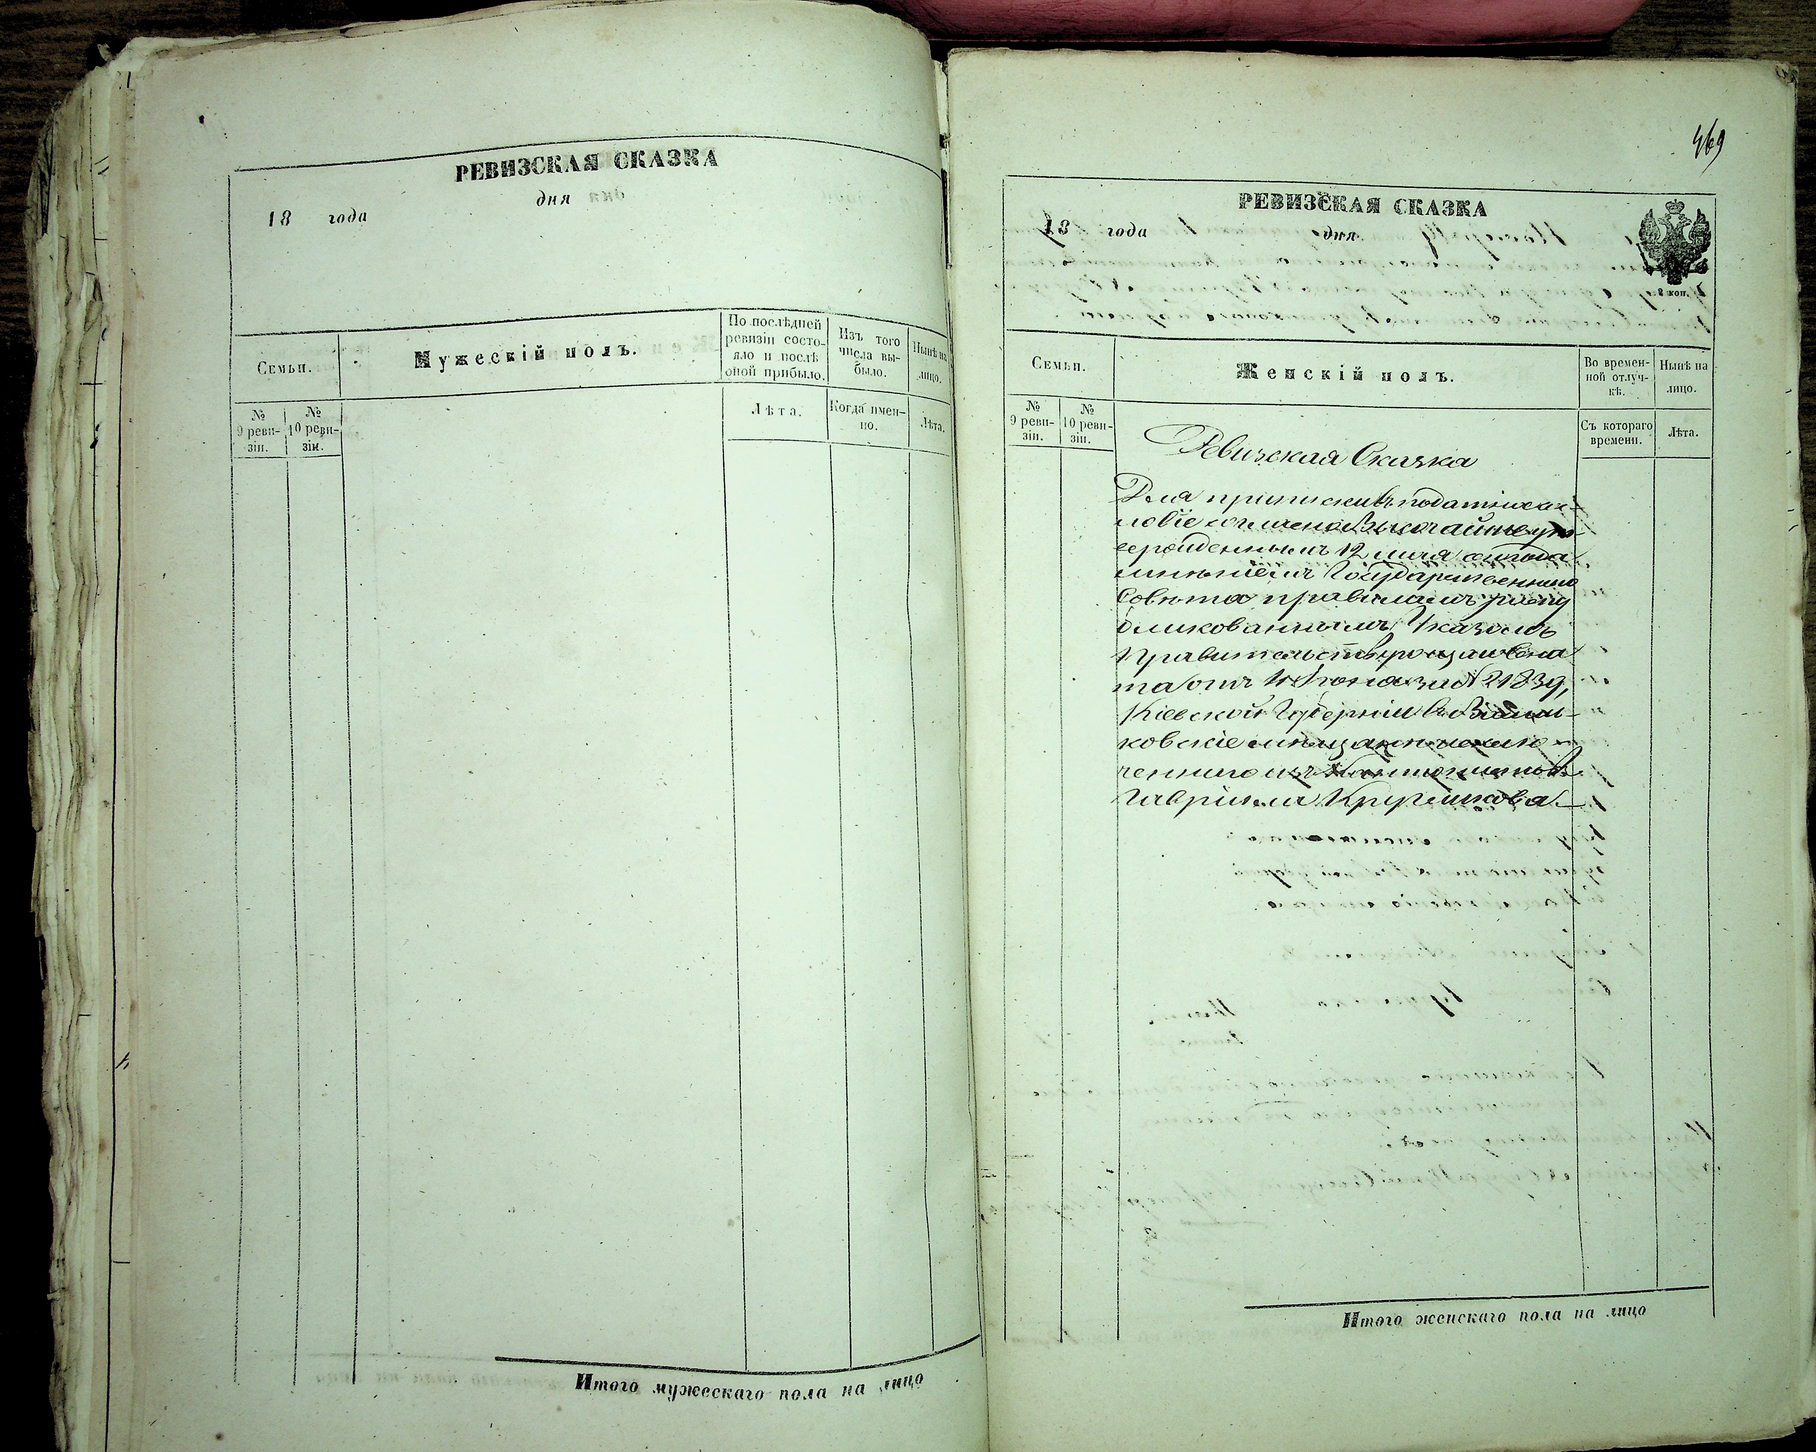 РЕВИЗСКАЯ СКАЗКА
18 года дня
Семьи.
Мужескій полъ.
По послѣдней ревизіи состояло и послѣ оной прибыло.
Изъ того числа выбыло.
Нынѣ на лицо.
№ 9 ревизіи.
№ 10 ревизіи.
Лѣта.
Когда именно.
Лѣта.
Итого мужескаго пола на лицо
469
РЕВИЗСКАЯ СКАЗКА
18 года дня
2 коп.
Семьи.
Женскій полъ.
Во временной отлучкѣ.
Нынѣ на лицо.
№ 9 ревизіи.
№ 10 ревизіи.
Съ котораго времени.
Лѣта.
Ревизская Сказка
Для приписки въ податное со-
словіе согласно Высочайше ут-
вержденнымъ 12 мая сего года
мнѣніемъ Государственнаго
Совѣта правиламъ распу
бликованнымъ Указомъ
Правительствующаго Сена
та отъ Іюня за № 21839,
Кіевской Губерніи въ Василь-
ковскіе мѣщане исклю-
ченнаго изъ Кантонистовъ
Гавріила
Итого женскаго пола на лицо